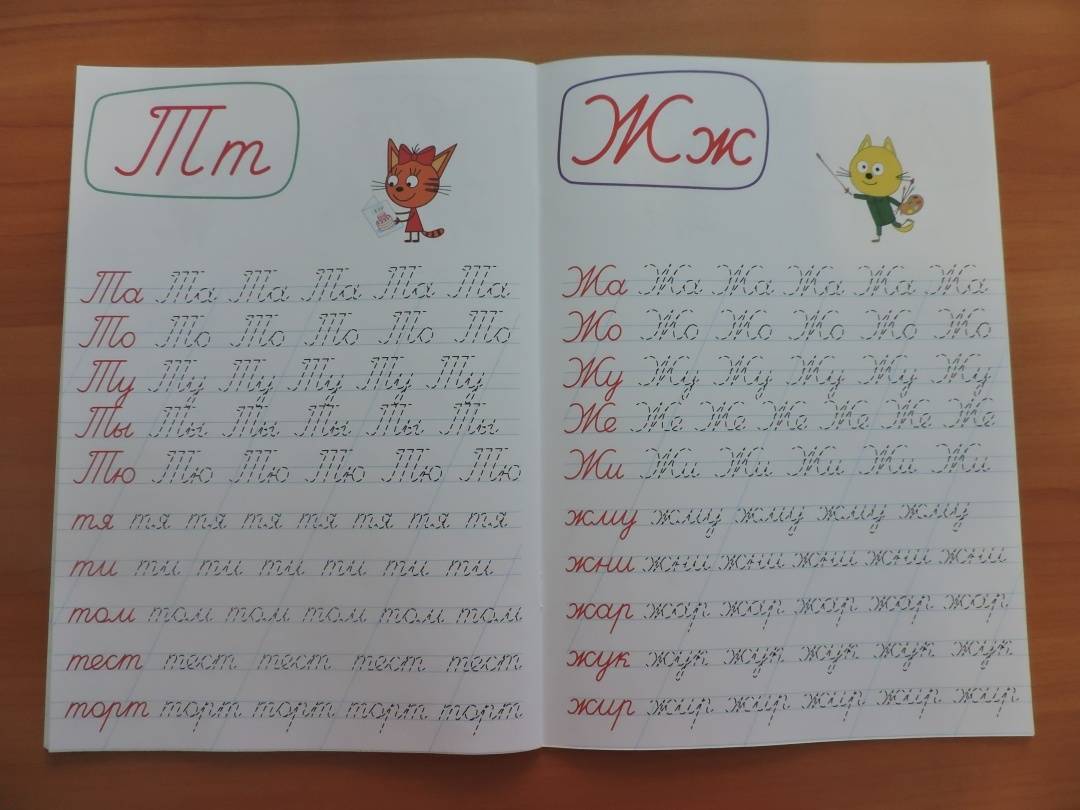 Тт
Та Та Та Та Та Та
То То То То То То
Ту Ту Ту Ту Ту Ту
Ты Ты Ты Ты Ты Ты
Тю Тю Тю Тю Тю Тю
тя тя тя тя тя тя тя тя
ти ти ти ти ти ти ти
том том том том том том
тест тест тест тест тест
торт торт торт торт торт
Жж
Жа Жа Жа Жа Жа Жа
Жо Жо Жо Жо Жо Жо
Жу Жу Жу Жу Жу Жу
Же Же Же Же Же Же Же
Жи Жи Жи Жи Жи Жи
жму жму жму жму жму
жни жни жни жни жни жни
жар жар жар жар жар жар
жук жук жук жук жук жук
жир жир жир жир жир жир